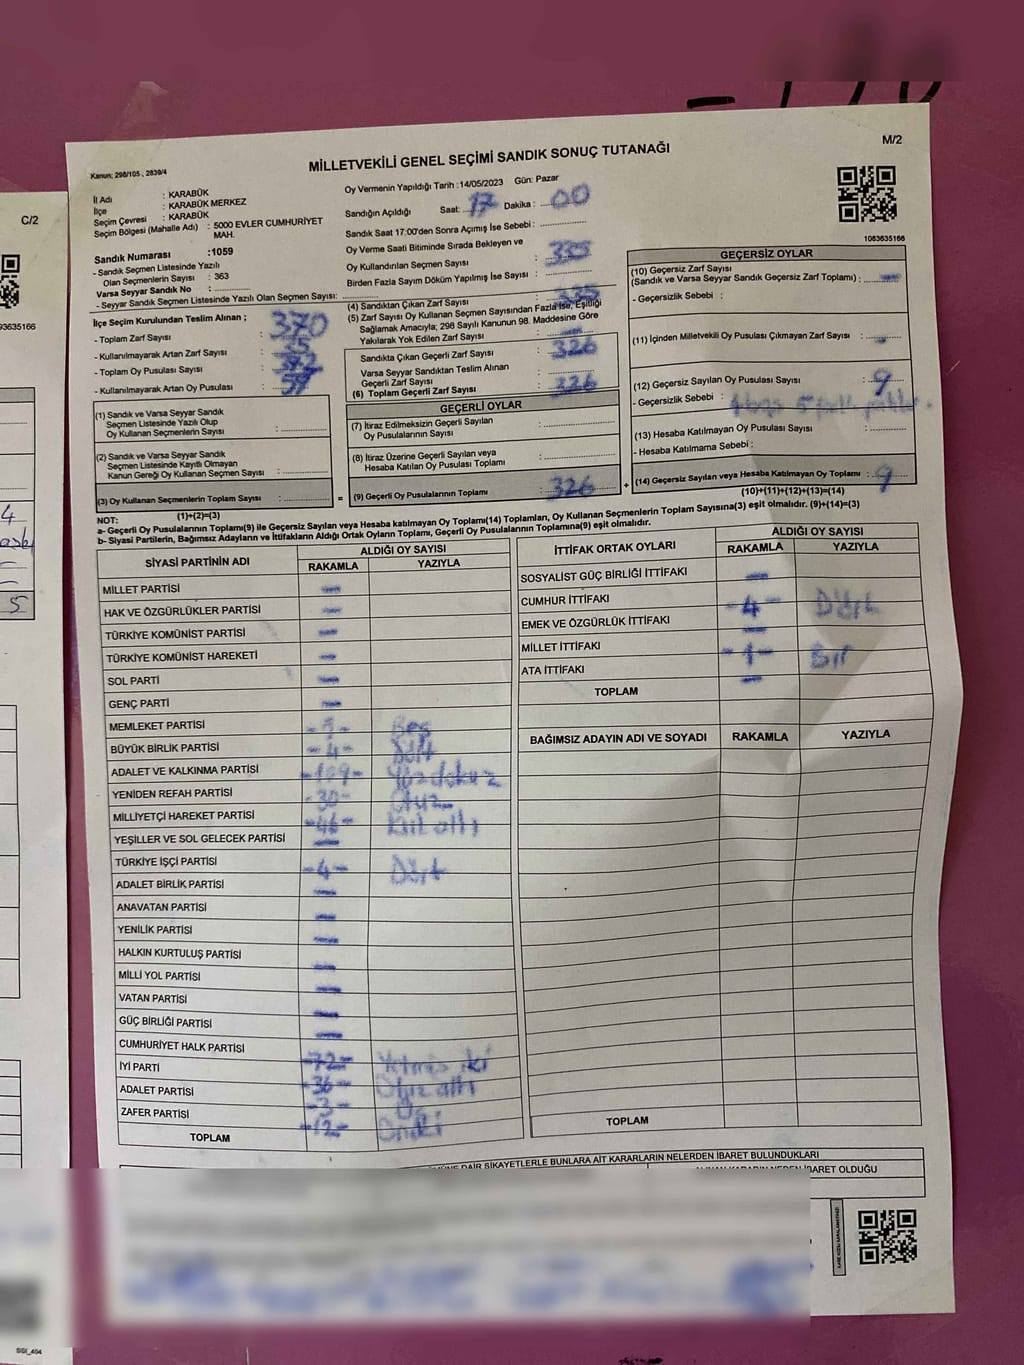 M/2
MİLLETVEKİLİ GENEL SEÇİMİ SANDIK SONUÇ TUTANAĞI
Kanun: 298/105-, 2839/4
İl Adı : KARABÜK
İlçe : KARABÜK MERKEZ
Seçim Çevresi : KARABÜK
Seçim Bölgesi (Mahalle Adı) : 5000 EVLER CUMHURİYET
MAH.
Sandık Numarası :1059
- Sandık Seçmen Listesinde Yazılı
Olan Seçmenlerin Sayısı : 363
Varsa Seyyar Sandık No :
- Seyyar Sandık Seçmen Listesinde Yazılı Olan Seçmen Sayısı:
İlçe Seçim Kurulundan Teslim Alınan ;
- Toplam Zarf Sayısı : 370
- Kullanılmayarak Artan Zarf Sayısı :
- Toplam Oy Pusulası Sayısı :
- Kullanılmayarak Artan Oy Pusulası :
(1) Sandık ve Varsa Seyyar Sandık
Seçmen Listesinde Yazılı Olup
Oy Kullanan Seçmenlerin Sayısı :
(2) Sandık ve Varsa Seyyar Sandık
Seçmen Listesinde Kayıtlı Olmayan
Kanun Gereği Oy Kullanan Seçmen Sayısı :
(3) Oy Kullanan Seçmenlerin Toplam Sayısı :
(1)+(2)=(3)
Oy Vermenin Yapıldığı Tarih :14/05/2023 Gün: Pazar
Sandığın Açıldığı Saat: 17 Dakika : 00
Sandık Saat 17:00'den Sonra Açımış İse Sebebi :
Oy Verme Saati Bitiminde Sırada Bekleyen ve
Oy Kullandırılan Seçmen Sayısı : 335
Birden Fazla Sayım Döküm Yapılmış İse Sayısı :
(4) Sandıktan Çıkan Zarf Sayısı : 335
(5) Zarf Sayısı Oy Kullanan Seçmen Sayısından Fazla İse, Eşitliği
Sağlamak Amacıyla; 298 Sayılı Kanunun 98. Maddesine Göre
Yakılarak Yok Edilen Zarf Sayısı :
Sandıkta Çıkan Geçerli Zarf Sayısı : 326
Varsa Seyyar Sandıktan Teslim Alınan
Geçerli Zarf Sayısı :
(6) Toplam Geçerli Zarf Sayısı : 326
GEÇERLİ OYLAR
(7) İtiraz Edilmeksizin Geçerli Sayılan
Oy Pusulalarının Sayısı :
(8) İtiraz Üzerine Geçerli Sayılan veya
Hesaba Katılan Oy Pusulası Toplamı :
= (9) Geçerli Oy Pusulalarının Toplamı : 326 +
1083635166
GEÇERSİZ OYLAR
(10) Geçersiz Zarf Sayısı
(Sandık ve Varsa Seyyar Sandık Geçersiz Zarf Toplamı) : -
- Geçersizlik Sebebi :
(11) İçinden Milletvekili Oy Pusulası Çıkmayan Zarf Sayısı : -
(12) Geçersiz Sayılan Oy Pusulası Sayısı : 9
- Geçersizlik Sebebi :
(13) Hesaba Katılmayan Oy Pusulası Sayısı :
- Hesaba Katılmama Sebebi :
(14) Geçersiz Sayılan veya Hesaba Katılmayan Oy Toplamı : 9
(10)+(11)+(12)+(13)=(14)
NOT:
a- Geçerli Oy Pusulalarının Toplamı(9) ile Geçersiz Sayılan veya Hesaba katılmayan Oy Toplamı(14) Toplamları, Oy Kullanan Seçmenlerin Toplam Sayısına(3) eşit olmalıdır. (9)+(14)=(3)
b- Siyasi Partilerin, Bağımsız Adayların ve İttifakların Aldığı Ortak Oyların Toplamı, Geçerli Oy Pusulalarının Toplamına(9) eşit olmalıdır.
SİYASİ PARTİNİN ADI ALDIĞI OY SAYISI
RAKAMLA YAZIYLA
MİLLET PARTİSİ -
HAK VE ÖZGÜRLÜKLER PARTİSİ -
TÜRKİYE KOMÜNİST PARTİSİ -
TÜRKİYE KOMÜNİST HAREKETİ -
SOL PARTİ -
GENÇ PARTİ -
MEMLEKET PARTİSİ -5- Beş
BÜYÜK BİRLİK PARTİSİ -4- Dört
ADALET VE KALKINMA PARTİSİ -109- Yüzdokuz
YENİDEN REFAH PARTİSİ -30- Otuz
MİLLİYETÇİ HAREKET PARTİSİ -46- Kırk altı
YEŞİLLER VE SOL GELECEK PARTİSİ -
TÜRKİYE İŞÇİ PARTİSİ -4- Dört
ADALET BİRLİK PARTİSİ -
ANAVATAN PARTİSİ -
YENİLİK PARTİSİ -
HALKIN KURTULUŞ PARTİSİ -
MİLLİ YOL PARTİSİ -
VATAN PARTİSİ -
GÜÇ BİRLİĞİ PARTİSİ -
CUMHURİYET HALK PARTİSİ -72- Yetmiş iki
İYİ PARTİ -36- Otuz altı
ADALET PARTİSİ -3- Üç
ZAFER PARTİSİ -12- Oniki
TOPLAM
İTTİFAK ORTAK OYLARI ALDIĞI OY SAYISI
RAKAMLA YAZIYLA
SOSYALİST GÜÇ BİRLİĞİ İTTİFAKI -
CUMHUR İTTİFAKI -4- Dört
EMEK VE ÖZGÜRLÜK İTTİFAKI -
MİLLET İTTİFAKI -1- Bir
ATA İTTİFAKI -
TOPLAM
BAĞIMSIZ ADAYIN ADI VE SOYADI RAKAMLA YAZIYLA
TOPLAM
DAİR ŞİKAYETLERLE BUNLARA AİT KARARLARIN NELERDEN İBARET BULUNDUKLARI
İBARET OLDUĞU
C/2
93635166
4
5
SSI_404